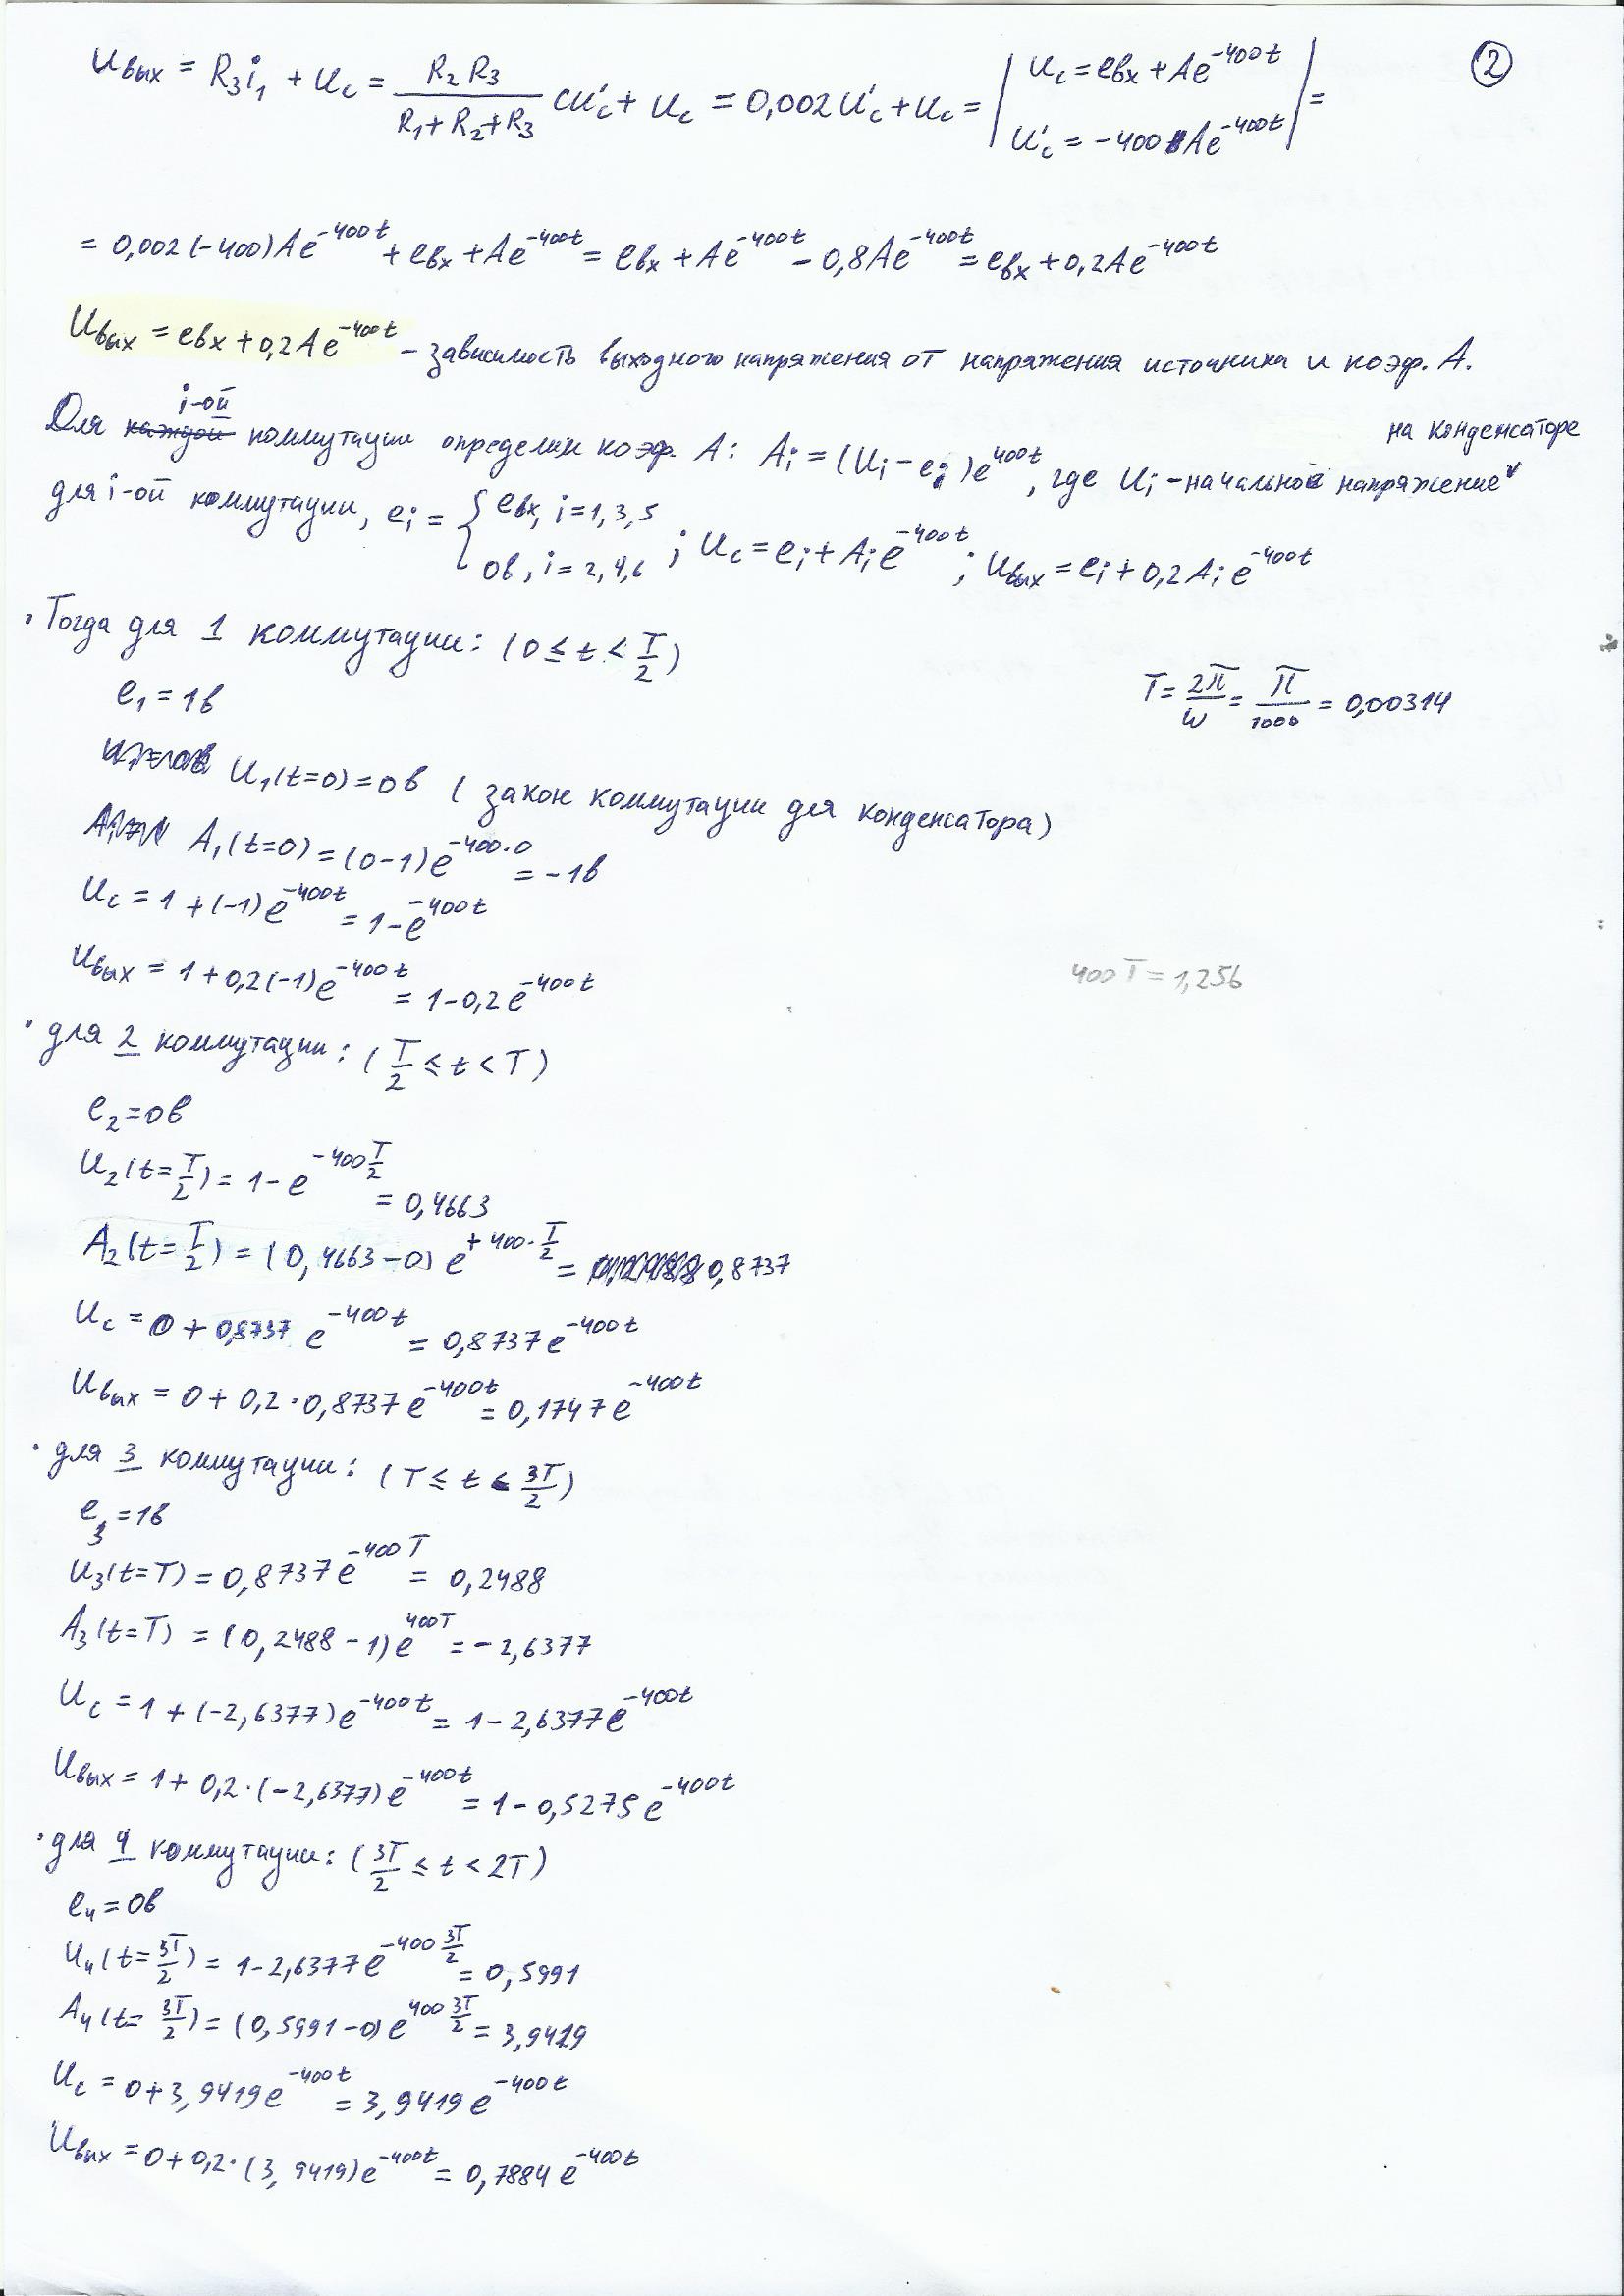 ②
Uвых = R₃i₁ + Uc = R₂R₃/(R₁+R₂+R₃) CU'c + Uc = 0,002U'c + Uc = | Uc = eвх + Ae^(-400t) ; U'c = -400Ae^(-400t) | =
= 0,002(-400)Ae^(-400t) + eвх + Ae^(-400t) = eвх + Ae^(-400t) - 0,8Ae^(-400t) = eвх + 0,2Ae^(-400t)
Uвых = eвх + 0,2Ae^(-400t) - зависимость выходного напряжения от напряжения источника и коэф. A.
Для i-ой коммутации определим коэф. A: Ai = (Ui - ei)e^(400t), где Ui - начальное напряжение на конденсаторе
для i-ой коммутации, ei = { eвх, i = 1, 3, 5 ; 0в, i = 2, 4, 6 ; Uc = ei + Ai e^(-400t) ; Uвых = ei + 0,2Ai e^(-400t)
· Тогда для 1 коммутации: (0 ≤ t < T/2)
e₁ = 1в
T = 2π/w = π/1000 = 0,00314
U₁(t=0) = 0в (закон коммутации для конденсатора)
A₁(t=0) = (0-1)e^(-400·0) = -1в
Uc = 1 + (-1)e^(-400t) = 1 - e^(-400t)
Uвых = 1 + 0,2(-1)e^(-400t) = 1 - 0,2e^(-400t)
400T = 1,256
· для 2 коммутации: (T/2 ≤ t < T)
e₂ = 0в
U₂(t=T/2) = 1 - e^(-400 T/2) = 0,4663
A₂(t=T/2) = (0,4663-0)e^(+400·T/2) = 0,8737
Uc = 0 + 0,8737 e^(-400t) = 0,8737e^(-400t)
Uвых = 0 + 0,2·0,8737e^(-400t) = 0,1747e^(-400t)
· для 3 коммутации: (T ≤ t < 3T/2)
e₃ = 1в
U₃(t=T) = 0,8737e^(-400T) = 0,2488
A₃(t=T) = (0,2488-1)e^(400T) = -2,6377
Uc = 1 + (-2,6377)e^(-400t) = 1 - 2,6377e^(-400t)
Uвых = 1 + 0,2·(-2,6377)e^(-400t) = 1 - 0,5275e^(-400t)
· для 4 коммутации: (3T/2 ≤ t < 2T)
e₄ = 0в
U₄(t=3T/2) = 1 - 2,6377e^(-400 3T/2) = 0,5991
A₄(t=3T/2) = (0,5991-0)e^(400 3T/2) = 3,9419
Uc = 0 + 3,9419e^(-400t) = 3,9419e^(-400t)
Uвых = 0 + 0,2·(3,9419)e^(-400t) = 0,7884e^(-400t)